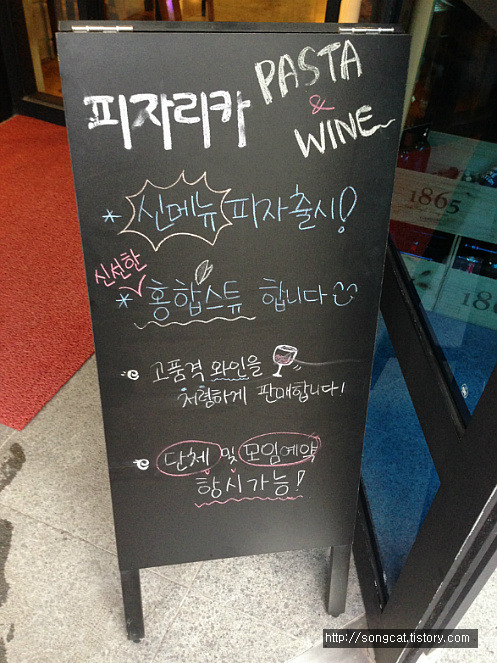 피자리카 PASTA
&
WINE
* 신메뉴 피자 출시!
신선한
* 홍합스튜 합니다
고품격 와인을
저렴하게 판매합니다!
단체 및 모임예약
항시 가능!
1865
186
http://songcat.tistory.com